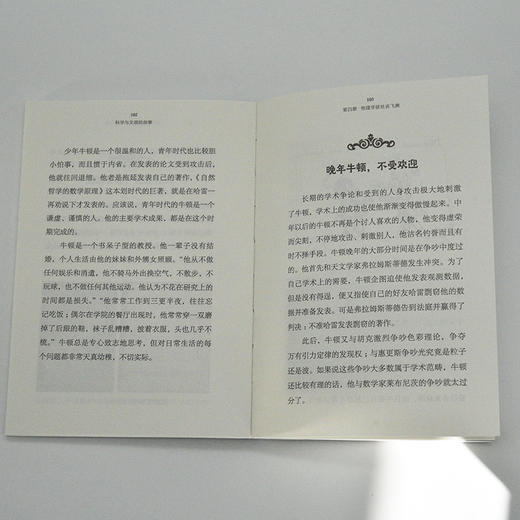 102
科学与文明的故事
少年牛顿是一个很温和的人，青年时代也比较胆
小怕事，而且惯于内省。在发表的论文受到攻击后，
他就往回退缩。他若是拖延发表自己的著作，《自然
哲学的数学原理》这本划时代的巨著，就是在哈雷一
再劝说下才发表的。应该说，青年时代的牛顿是一个
谦虚、谨慎的人。他的主要学术成果，都是在这个时
期完成的。
牛顿是一个书呆子型的教授。他一辈子没有结
婚，个人生活由他的妹妹和外甥女照顾。“他从不做
任何娱乐和消遣，他不骑马外出换空气，不散步，不
玩球，也不做任何运动。他认为不花在研究上的时
间都是损失。”“他常常工作到三更半夜，往往忘
记吃饭；偶尔在学院的餐厅出现时，他常常穿一双磨
掉了后跟的鞋，袜子乱糟糟，披着衣服，头也几乎不
梳。”牛顿总是专心致志地思考，但对日常生活的每
个问题都非常天真幼稚，不切实际。
103
第四章·物理学获社会飞翔
晚年牛顿，不受欢迎
长期的学术争论和受到的人身攻击极大地刺激
了牛顿，学术上的成功也使他渐渐变得傲慢起来。中
年以后的牛顿不再是个讨人喜欢的人物，他变得虚荣
而尖刻，不停地攻击、刺激别人，他沽名钓誉而且有
时不择手段。牛顿晚年的大部分时间是在争吵中度过
的。他首先和天文学家弗拉姆斯蒂德发生冲突。为了
自己学术上的需要，牛顿企图迫使他发表观测数据，
但是他没有得逞，便又指使自己的好友哈雷剽窃他的数
据并准备发表。可是弗拉姆斯蒂德告到法庭并赢得了
判决：不准哈雷发表剽窃的著作。
此后，牛顿又与胡克激烈争吵色彩理论，争夺
万有引力定律的发现权；与惠更斯争吵光究竟是粒子
还是波。如果说这些争吵大多数属于学术范畴，牛顿
还比较有理的话，他与数学家莱布尼茨的争吵就太过
分了。